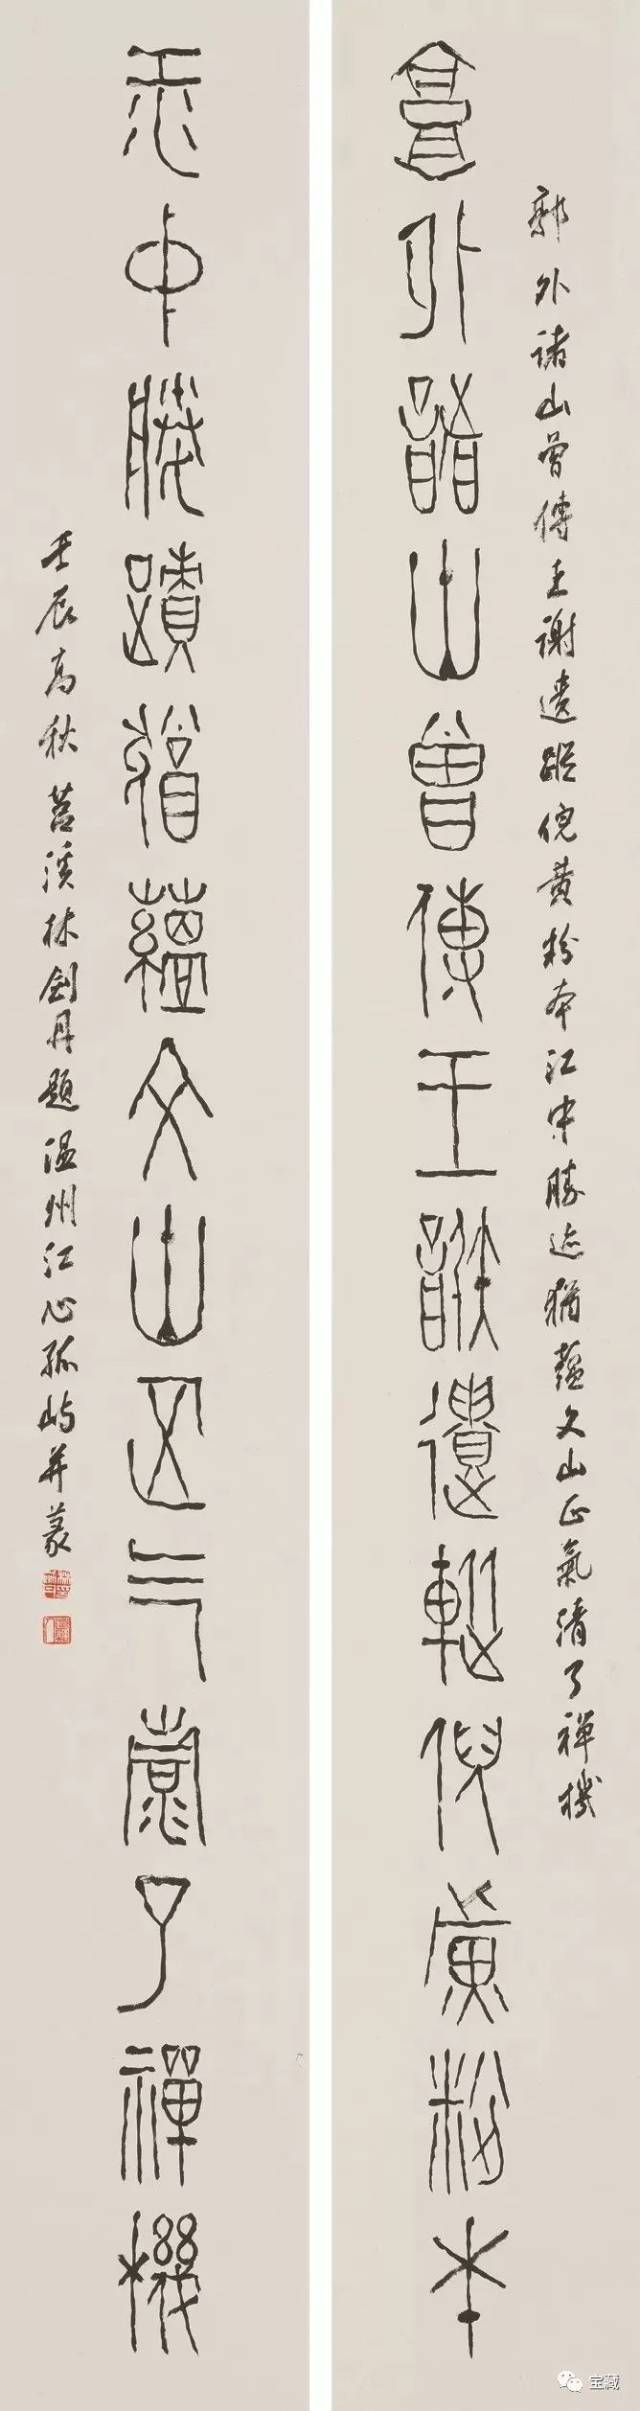 郭外诸山曾傳王谢遗蹤倪黄粉本江中勝迹猶蕴文山正氣清了禅機
郭外諸山曾傳王謝遺蹤倪黄粉本
江中勝蹟猶蘊文山正气清了禪機
壬辰高秋苕溪林劍丹題温州江心孤屿并篆
宝藏